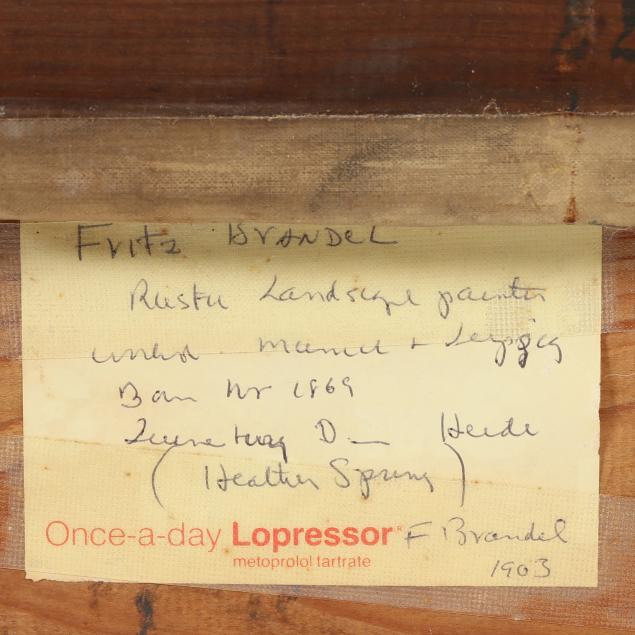 Fritz BRANDEL
Rustic Landscape painter
Munich + Leipzig
Born Nr 1869
Heide
(Heather Spring)
Once-a-day Lopressor® F Brandel
metoprolol tartrate 1903